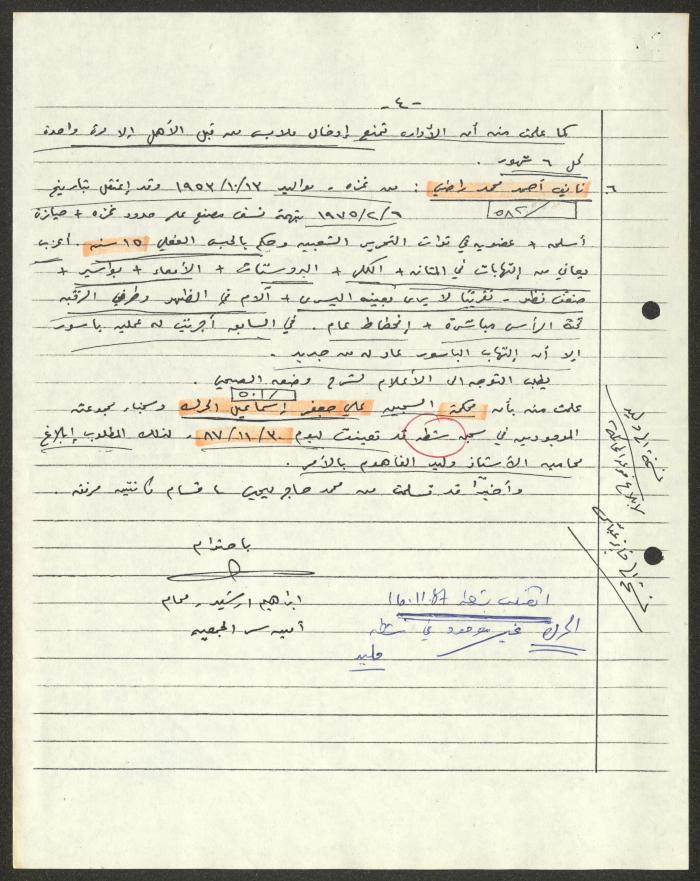 -٤-
كما علمت منه أن الإدارة تمنع إدخال ملابس من قبل الأهل إلا مرة واحدة
كل ٦ شهور .
٦. نايف أحمد محمد راضي : من غزه - مواليد ١٩٥٣/١٠/١٣ وقد إعتقل بتاريخ
٥٨٢/
١٩٧٥/٢/٦ بتهمة نسف مصنع على حدود غزه + حيازة
أسلحه + عضويه في قوات التحرير الشعبيه وحكم بالحبس الفعلي ١٥ سنه . أعزب
يعاني من إلتهابات في المثانه + الكلى + البروستات + الأمعاء + بواسير +
ضعف نظر - تقريبًا لا يرى بعينه اليسرى + آلام في الظهر وطرفي الرقبه
تحت الرأس مباشرة + إنحطاط عام . في السابق أجريت له عمليه باسور
إلا أن إلتهاب الباسور عاد له من جديد .
يطلب التوجه الى الأعلام لشرح وضعه الصحي .
٥٠١/
علمت منه بأن محكمة السجين علي جعفر إسماعيل الحرك وسجناء مجموعته
الموجودين في سجن شطه قد تعينت ليوم ٨٧/١١/٣٠ ، لذلك المطلوب إبلاغ
محاميه الأستاذ وليد الفاهوم بالأمر .
وأخيرًا قد تسلمت من محمد حاج يحيى أقسام كانتين مرفقه .
باحترام
ابراهيم ارشيد - محام
أمين سر الجمعيه
اتصلت بشطه 16.11.87
الحرك غير موجود في شطه
وليد